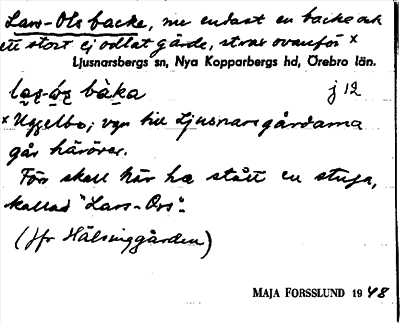 Lars-Ols backe, nu endast en backe och
ett stort ej odlat gärde, strax ovanför x
Ljusnarsbergs sn, Nya Kopparbergs hd, Örebro län.
bàka j 12
x Uggelbo; vägen till Ljusnarsgårdarna
går häröver.
Förr skall här ha stått en stuga,
kallad "Lars-Ors".
(jfr Hälsinggården)
MAJA FORSSLUND 1948